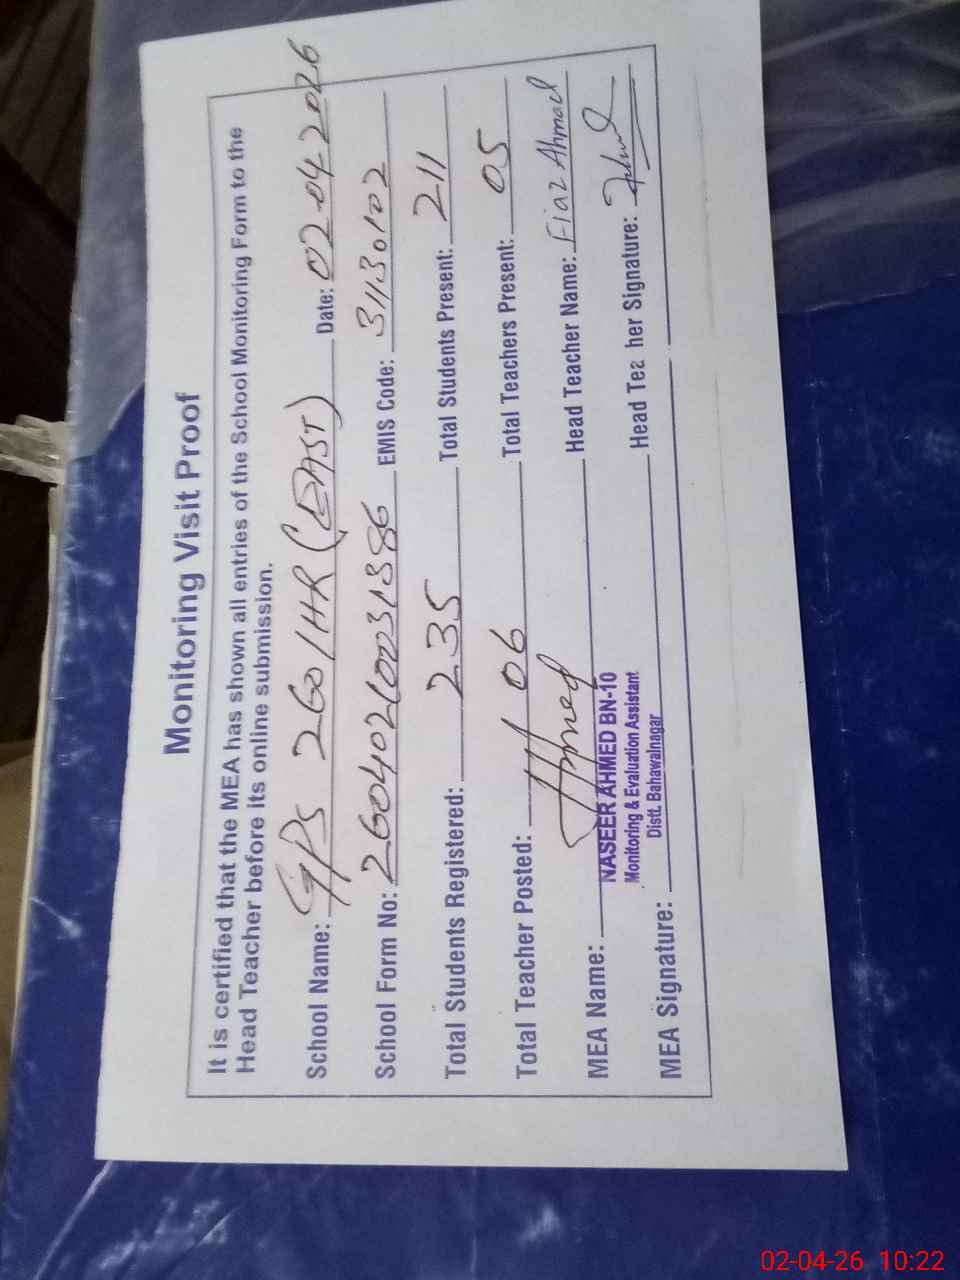 Monitoring Visit Proof
It is certified that the MEA has shown all entries of the School Monitoring Form to the
Head Teacher before its online submission.
School Name: GPS 260/HR (EAST) Date: 02-04-2026
School Form No: 26040210031386 EMIS Code: 31130102
Total Students Registered: 235 Total Students Present: 211
Total Teacher Posted: 06 Total Teachers Present: 05
MEA Name: Head Teacher Name: Fiaz Ahmad
NASEER AHMED BN-10
Monitoring & Evaluation Assistant
Distt. Bahawalnagar
MEA Signature: Head Tea her Signature:
02-04-26 10:22